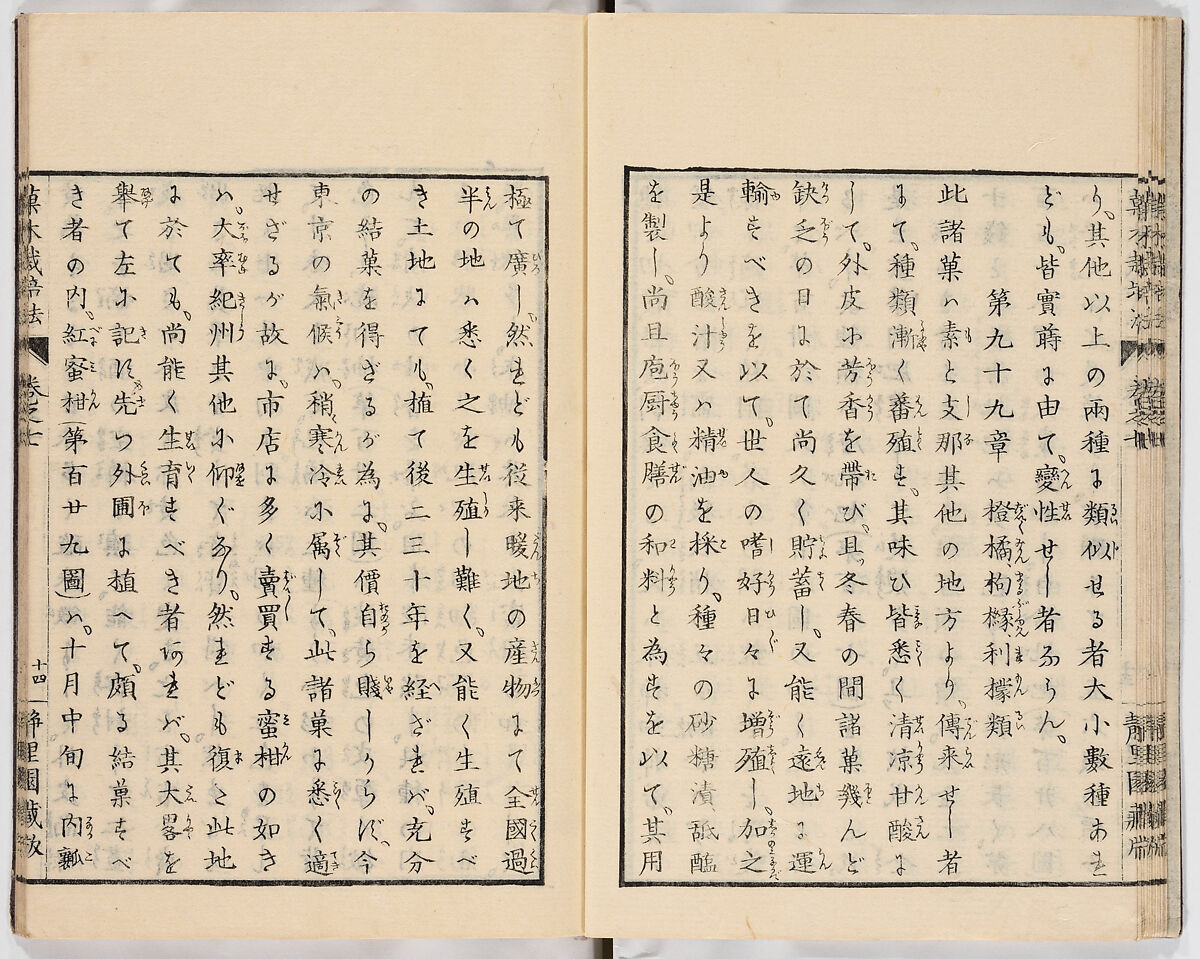 り、其他以上の兩種に類似せる者大小數種あれ
ども、皆實蒔に由て、變性せし者ならん。
第九十九章　橙橘枸櫞利檬類
此諸菓ハ素と支那其他の地方より、傳来せし者
にて、種類漸く蕃殖す、其味ひ皆悉く清凉甘酸に
して、外皮に芳香を帶び、且冬春の間諸菓幾んど
缺乏の日に於て尚久く貯蓄し、又能く遠地に運
輸すべきを以て、世人の嗜好日々に増殖し、加之
是より酸汁又ハ精油を採り、種々の砂糖漬舐醢
を製し、尚且庖厨食膳の和料と為すを以て、其用
極て廣し、然れども従来暖地の産物にて全國過
半の地ハ悉く之を生殖し難く、又能く生殖すべ
き土地にても、植て後二三十年を経ざれバ、充分
の結菓を得ざるが為に、其價自ら賤しからず、今
東京の氣候ハ、稍寒冷に属して、此諸菓に悉く適
せざるが故に、市店に多く賣買する蜜柑の如き
ハ、大率紀州其他に仰ぐなり、然れども復た此地
に於ても、尚能く生育すべき者あれバ、其大畧を
舉て左に記す、先つ外圃に植へて、頗る結菓すべ
き者の内、紅蜜柑(第百廿九圖)ハ、十月中旬に内瓤
菓木栽培法　卷之七　十四　静里園藏板